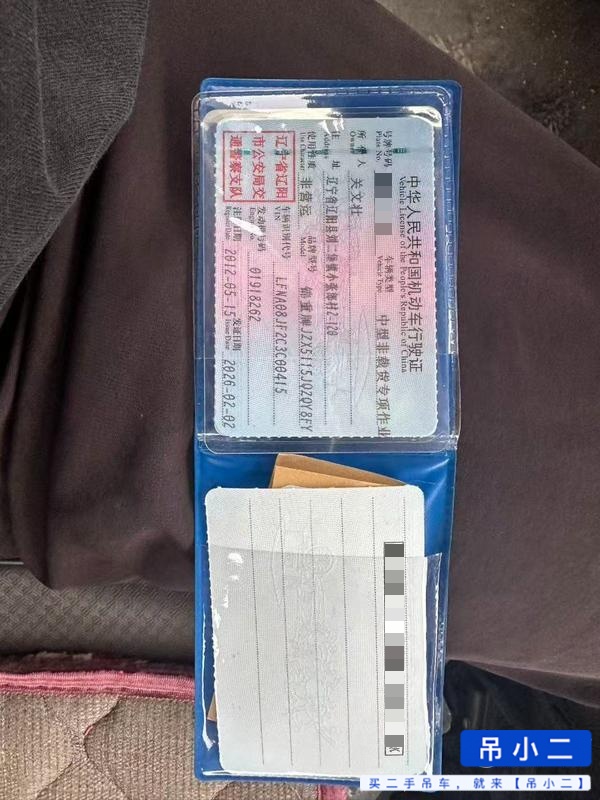 中华人民共和国机动车行驶证
Vehicle License of the People's Republic of China
号牌号码
Plate No.
车辆类型
Vehicle Type
中型非载货专项作业
所有人
Owner
关文壮
住址
Address
辽宁省辽阳县刘二堡镇小张邦村2-120
使用性质
Use Character
非营运
品牌型号
Model
锦重牌JZX5115JQZQY8FY
辽宁省辽阳
市公安局交
通警察支队
车辆识别代号
VIN
LFNA08JF2C3C00415
发动机号码
Engine No.
01918262
注册日期
Register Date
2012-05-15
发证日期
Issue Date
2026-02-02
吊小二
买二手吊车，就来【吊小二】